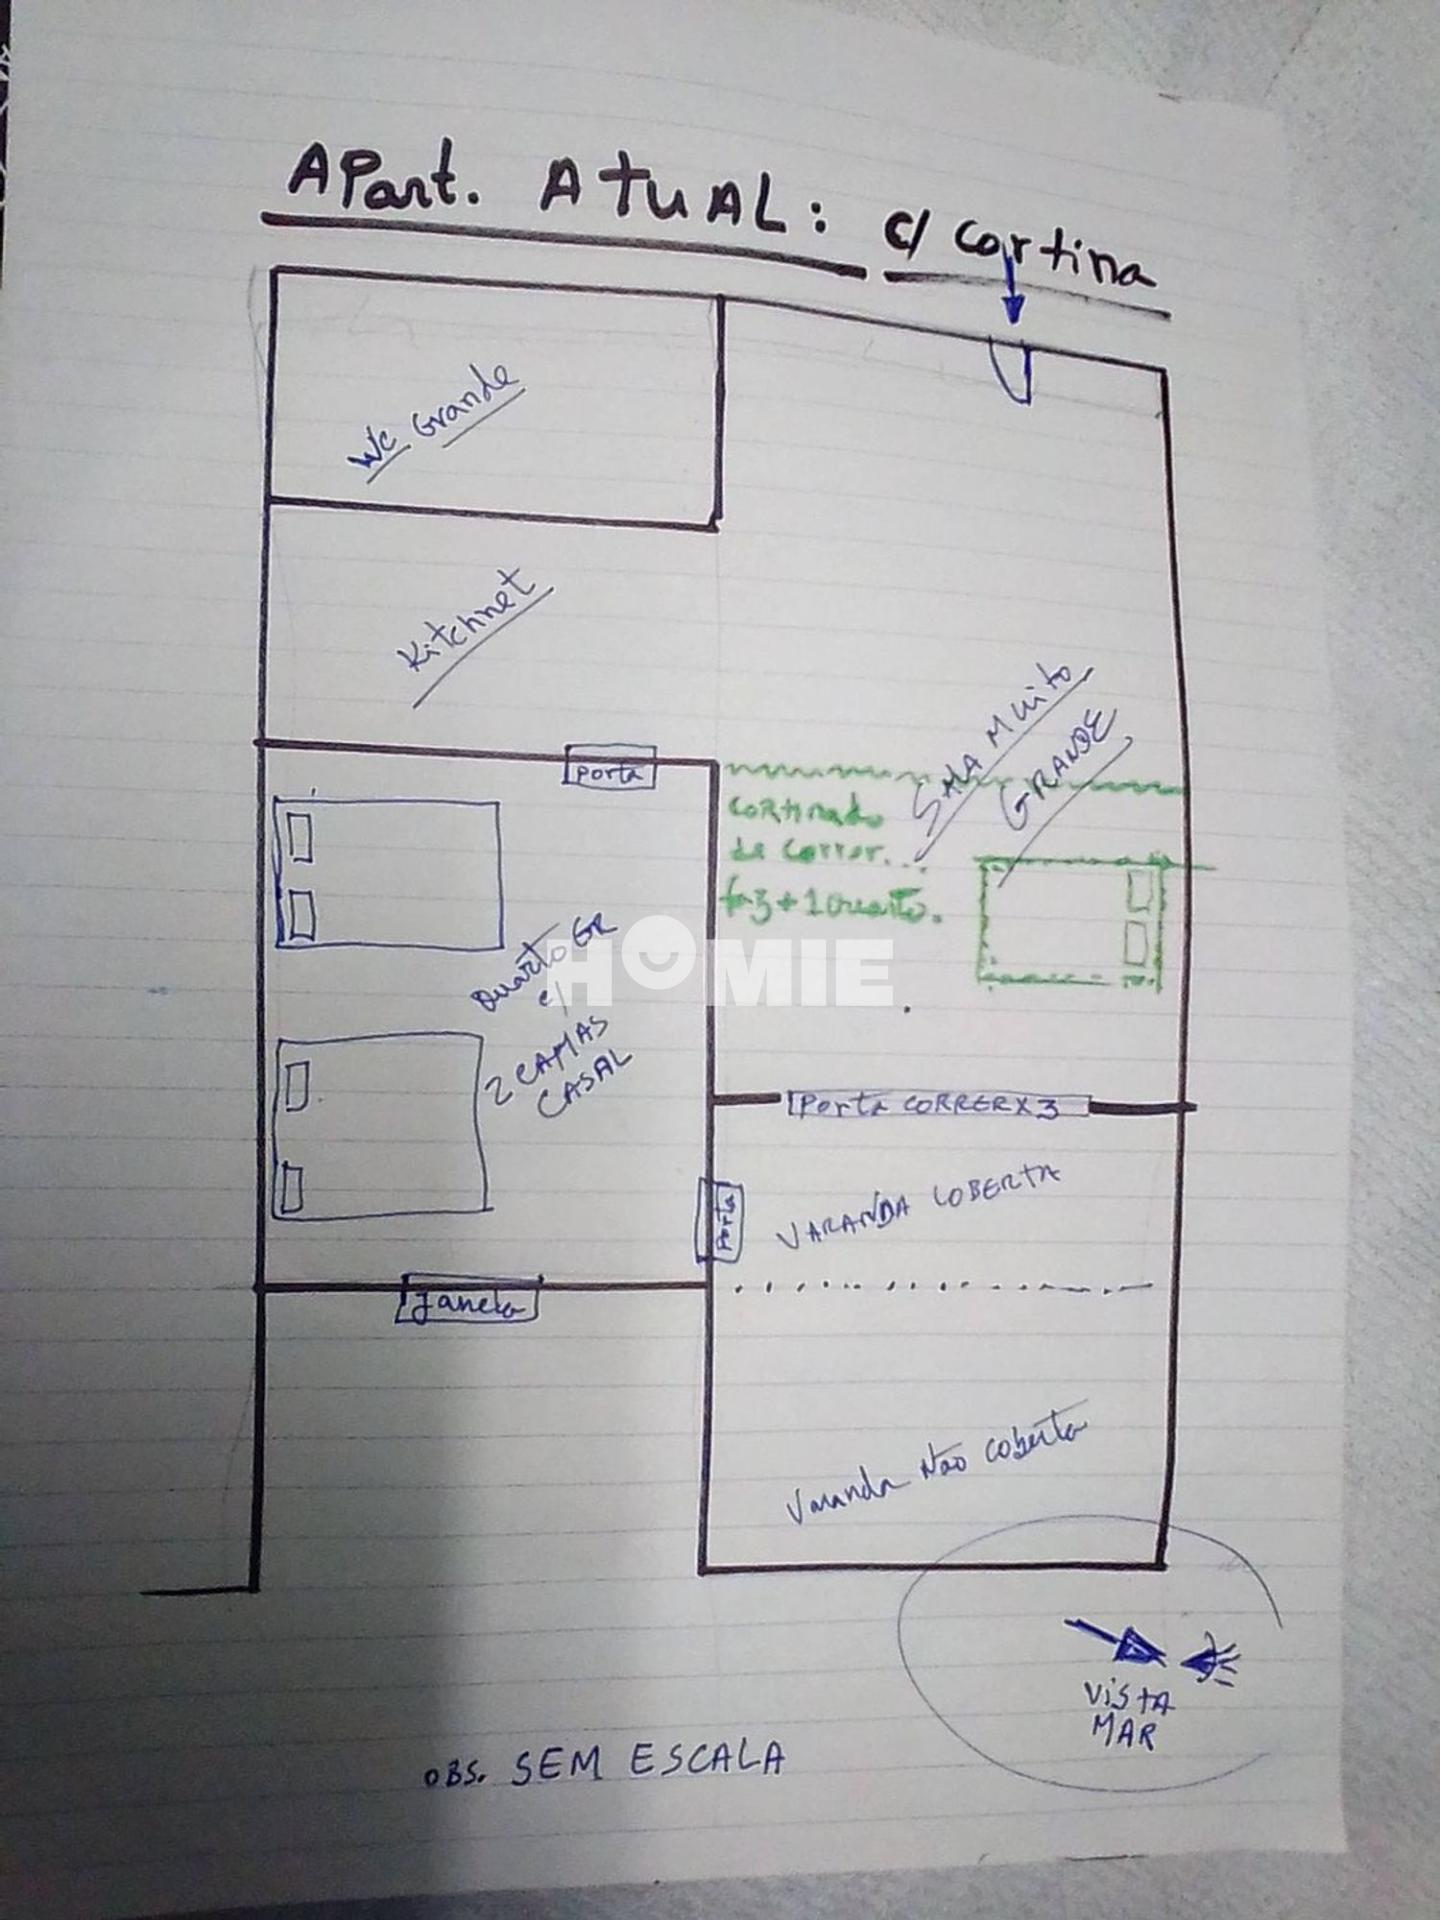 APart. ATUAL: c/ cortina
Wc Grande
Kitchnet
SALA Muito
GRANDE
Porta
cortinado
de correr...
faz + 1 Quarto.
Quarto GR
c/
2 CAMAS
CASAL
HOMIE
Porta CORRER X 3
VARANDA COBERTA
Porta
Janela
Varanda Não coberta
VISTA
MAR
OBS. SEM ESCALA